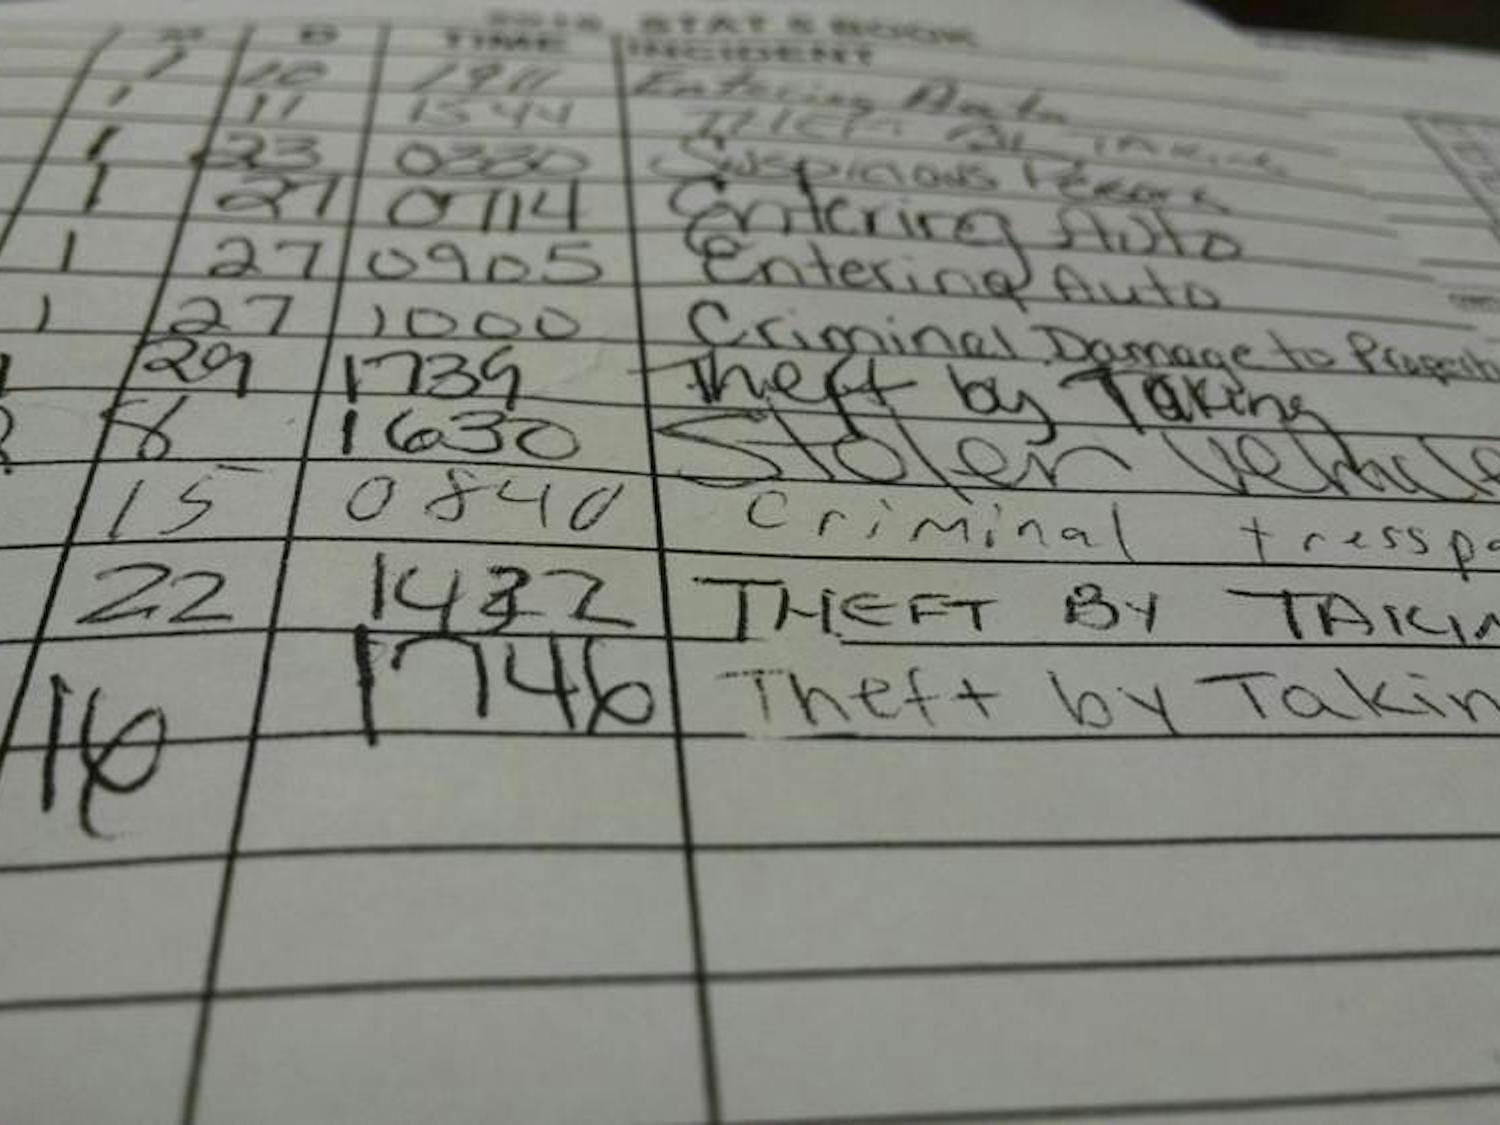 STAT S BOOK
M D TIME INCIDENT
1 10 1911 Entering Auto
1 11 1544 THEFT BY
1 23 0330 Suspicious Person
1 27 0714 Entering Auto
1 27 0905 Entering Auto
1 27 1000 Criminal Damage to Property
1 29 1739 Theft by Taking
1630 Stolen Vehicle
15 0840 Criminal tresspa
22 1432 THEFT BY TAKIN
16 1746 Theft by Takin